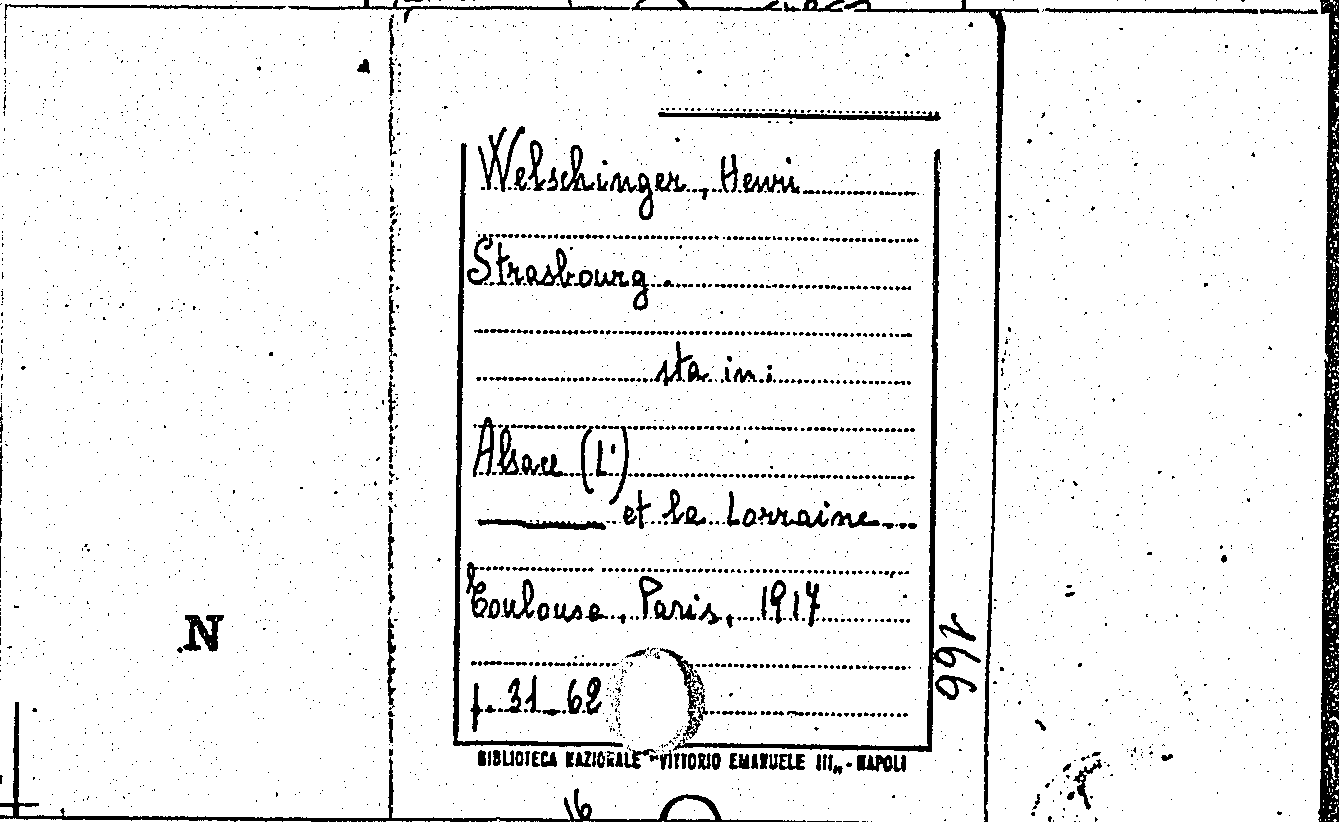 Welschinger, Henri
Strasbourg.
sta in:
Alsace (L')
et la Lorraine...
Toulouse, Paris, 1917
p. 31-62
166
N
BIBLIOTECA NAZIONALE "VITTORIO EMANUELE III„ - NAPOLI
16